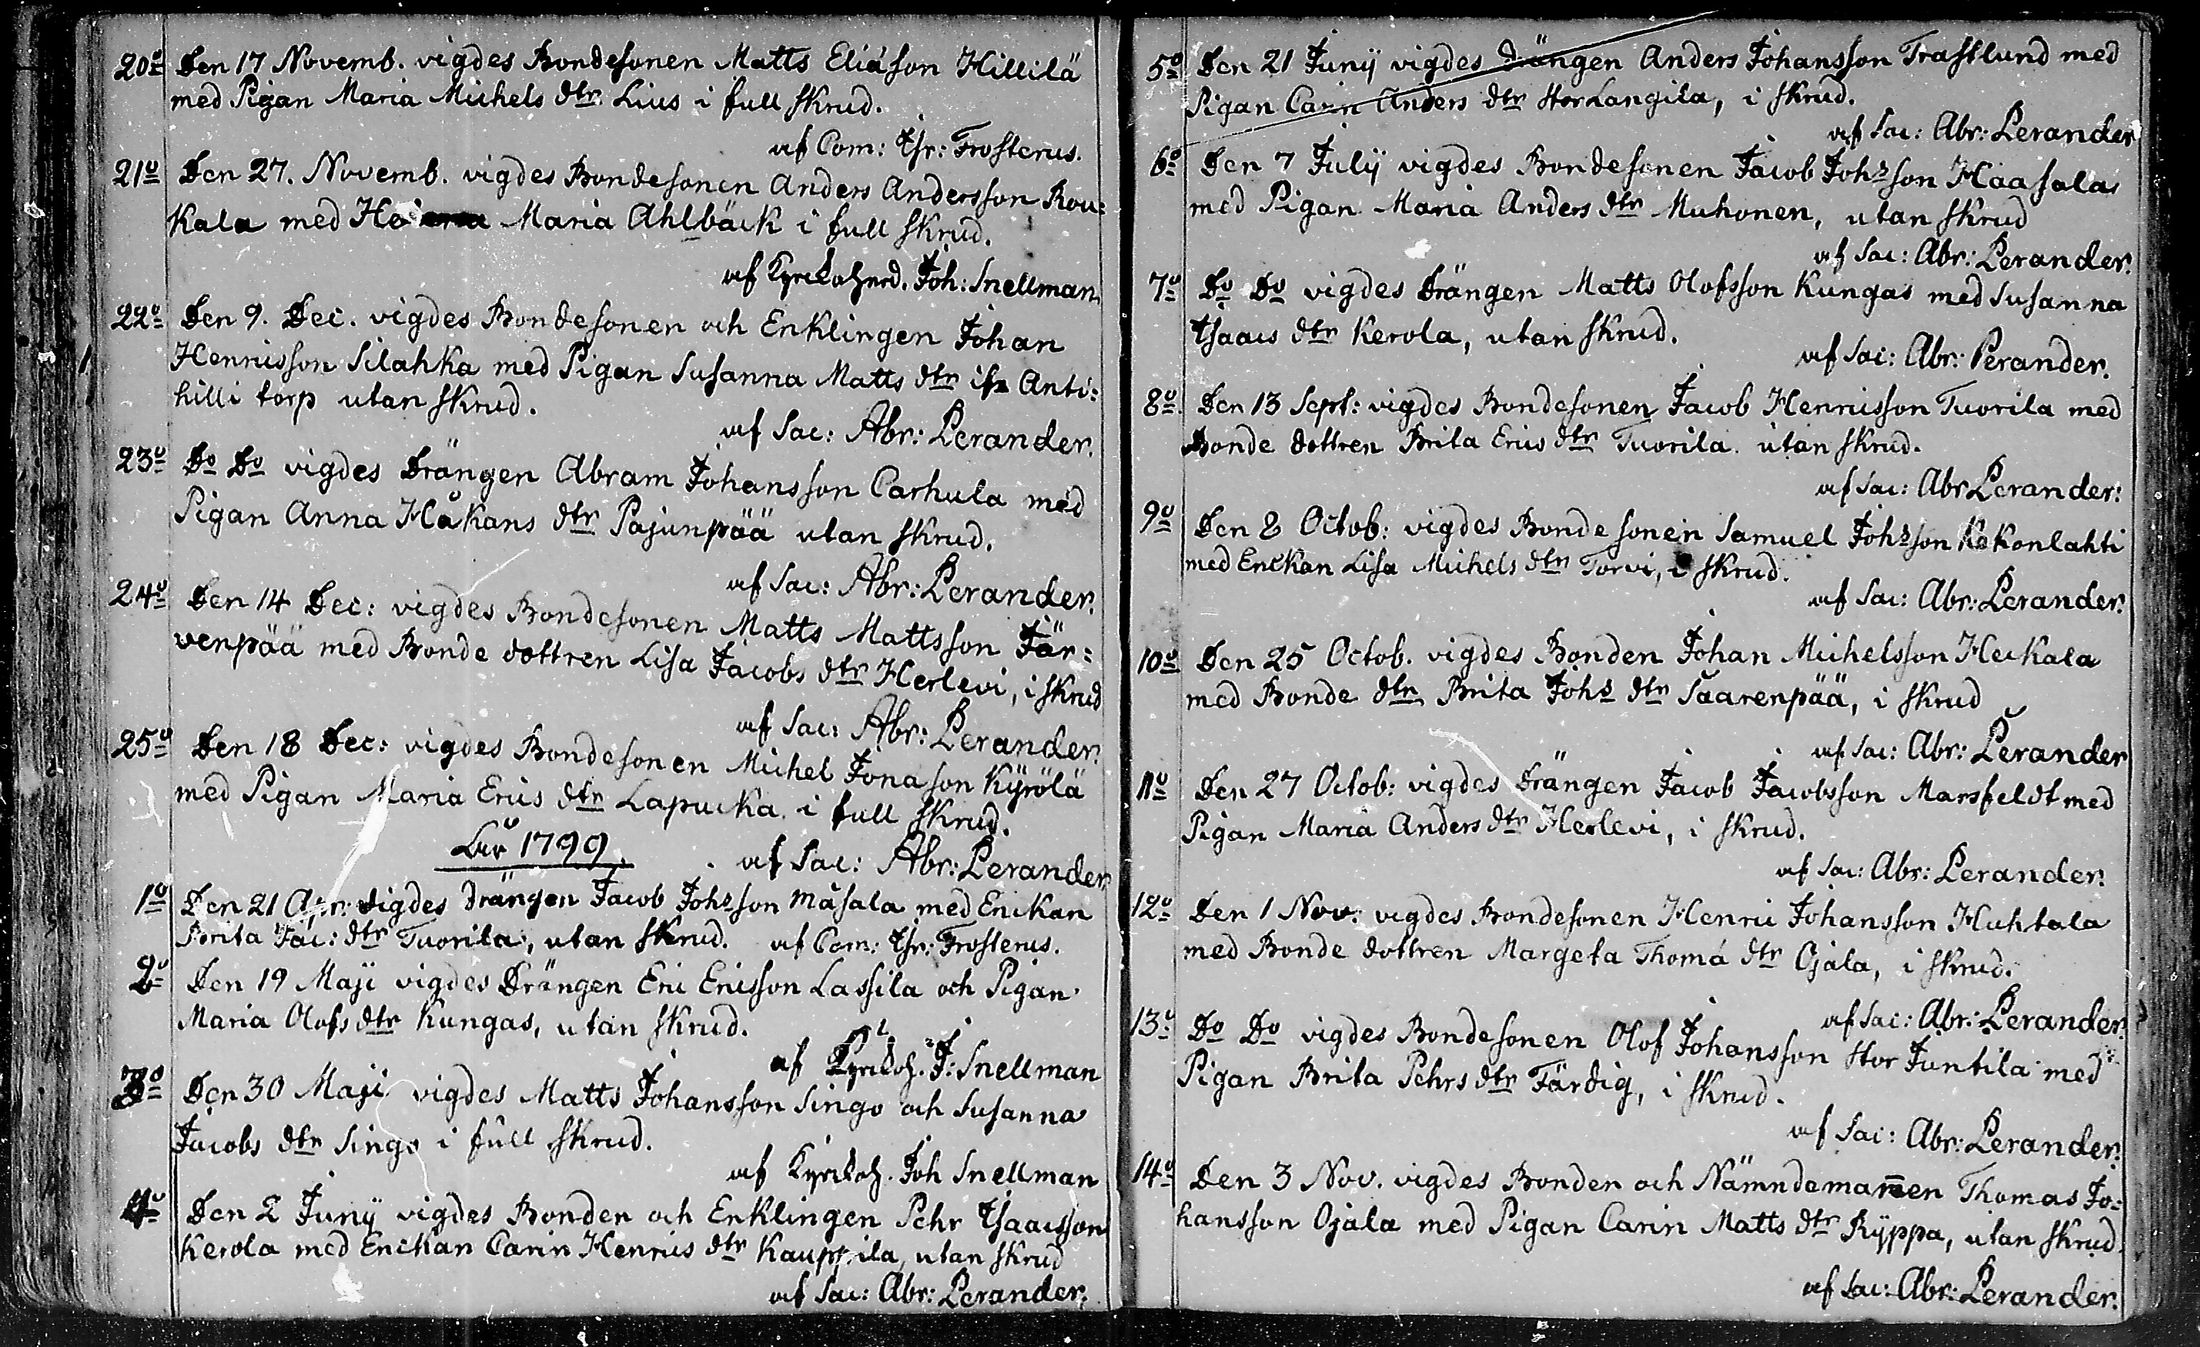 20o Den 17 Novemb. vigdes Bondesonen Matts Eliäson Hillilä
med Pigan Maria Michels dtr Lius i full skrud.
af Com: Chr: Frosterus.
21o Den 27. Novemb. vigdes Bondesonen Anders Andersson Rou=
kala med Maria Ahlbäck i full skrud.
af Joh: Snellman.
22o Den 9. Dec. vigdes Bondesonen och Enklingen Johan
Henricsson Silahka med Pigan Susanna Matts dtr Anti=
hilli torp utan skrud.
af Sac: Abr: Perander.
23o Do Do vigdes Drängen Abram Johansson Carhula med
Pigan Anna Håkans dtr Pajunpää utan skrud.
af Sac: Abr: Perander.
24o Den 14 Dec: vigdes Bondesonen Matts Mattsson Jär=
venpää med Bonde dottren Lisa Jacobs dtr Herlevi, i skrud
af Sac: Abr: Perander.
25o Den 18 Dec: vigdes Bondesonen Michel Jonason Kÿrölä
med Pigan Maria Erics dtr Lapucka i full skrud.
af Sac: Abr: Perander.
1799.
1o Den 21 Apr: vigdes Drängen Jacob Johsson Måsala med Enckan
Brita Jac: dtr Tuorila, utan skrud. af Com: Chr: Frosterus.
2o Den 19 Maji vigdes Drängen Eric Ericsson Lassila och Pigan
Maria Olofs dtr Kungas, utan skrud.
af J: Snellman
3o Den 30 Maji vigdes Matts Johansson Singo och Susanna
Jacobs dtr Singo i full skrud.
af Joh Snellman
4o Den 2 Junij vigdes Bonden och Enklingen Pehr Isaacsson
Kerola med Enckan Carin Henrics dtr Kauppila, utan skrud
af Sac: Abr: Perander.
5o Den 21 Junij vigdes drängen Anders Johansson Trastlund med
Pigan Carin Anders dtr Stor Langila, i skrud.
af Sac: Abr: Perander
6o Den 7 Julij vigdes Bondesonen Jacob Johsson Haasala
med Pigan Maria Anders dtr Muhonen, utan skrud
af Sac: Abr: Perander.
7o Do Do vigdes Drängen Matts Olofsson Kungas med Susanna
Isaacs dtr Kerola, utan skrud.
af Sac: Abr: Perander.
8o Den 13 Sept: vigdes Bondesonen Jacob Henricsson Tuorila med
Bonde dottren Brita Erics dtr Tuorila. utan skrud.
af Sac: Abr Perander.
9o Den 8 Octob: vigdes Bonde sonen Samuel Johsson Kokonlahti
med Enckan Lisa Michels dtr Torvi, i skrud.
af Sac: Abr: Perander.
10o Den 25 Octob. vigdes Bonden Johan Michelsson Heckala
med Bonde dtr Brita Johs dtr Saarenpää, i skrud
af Sac: Abr: Perander
11o Den 27 Octob: vigdes Drängen Jacob Jacobsson Marsfeldt med
Pigan Maria Anders dtr Herlevi, i skrud.
af Sac: Abr: Perander.
12o Den 1 Nov: vigdes Bondesonen Henric Johansson Huhtala
med Bonde dottren Margeta Thomä dtr Ojala, i skrud.
af Sac: Abr: Perander.
13o Do Do vigdes Bondesonen Olof Johansson Stor Juntila med
Pigan Brita Pehrs dtr Färdig, i skrud.
af Sac: Abr: Perander.
14o Den 3 Nov. vigdes Bonden och Nämndemannen Thomas Jo=
hansson Ojala med Pigan Carin Matts dtr Ryppa, utan skrud.
af Sac: Abr: Perander.